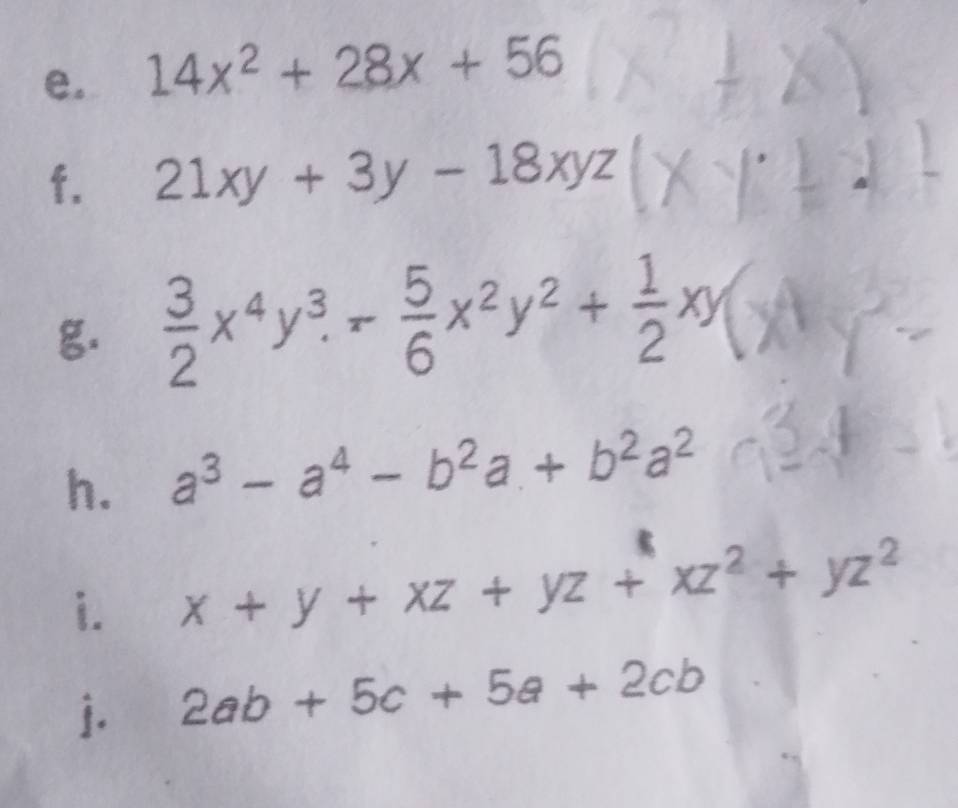 e. 14x² + 28x + 56
f. 21xy + 3y - 18xyz
g. 3/2 x⁴y³ - 5/6 x²y² + 1/2 xy
h. a³ - a⁴ - b²a + b²a²
i. x + y + xz + yz + xz² + yz²
j. 2ab + 5c + 5a + 2cb